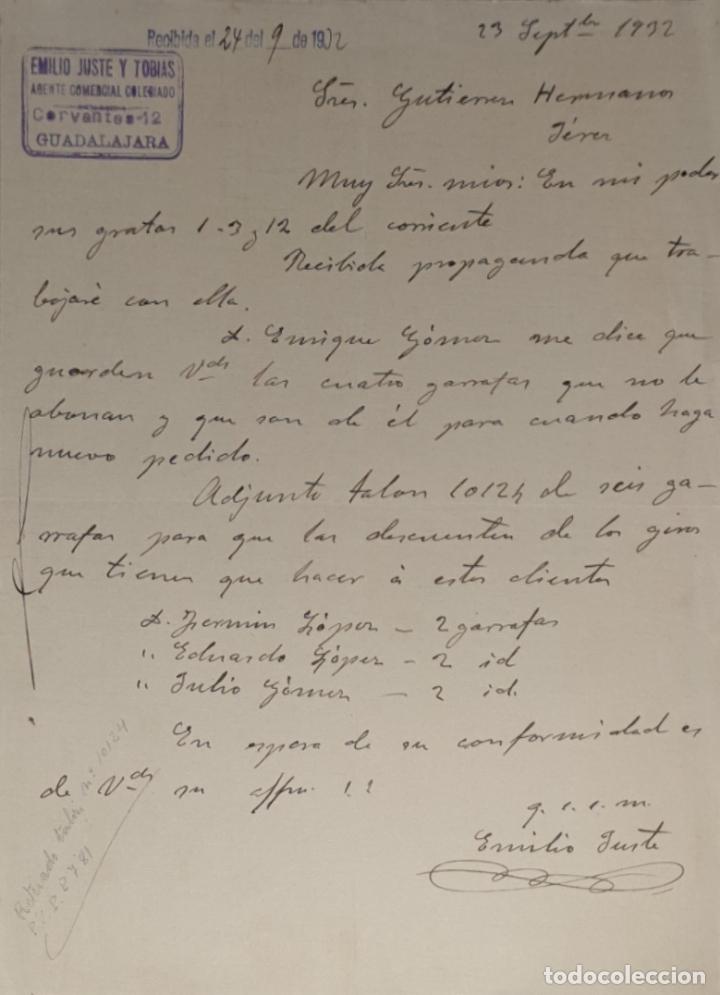 Recibida el 24 del 9 de 1932
23 Septbre 1932
EMILIO JUSTE Y TOBIAS
AGENTE COMERCIAL COLEGIADO
Cervantes-12
GUADALAJARA
Sres. Gutierrez Hermanos
Jérez
Muy Sres. mios: En mi poder
sus gratas 1-3 y 12 del corriente
Recibida propaganda que tra-
bajaré con ella.
D. Enrique Gómez me dice que
guarden Vds las cuatro garrafas que no le
abonan y que son de él para cuando haga
nuevo pedido.
Adjunto talon 10124 de seis ga-
rrafas para que las descuenten de los giros
que tienen que hacer á estos clientes
D. Fermin López - 2 garrafas
" Eduardo López - 2 id
" Julio Gómez - 2 id.
En espera de su conformidad es
de Vds su affmo. s. s.
q. e. e. m.
Emilio Juste
Retirado talón nº 10124
todocoleccion